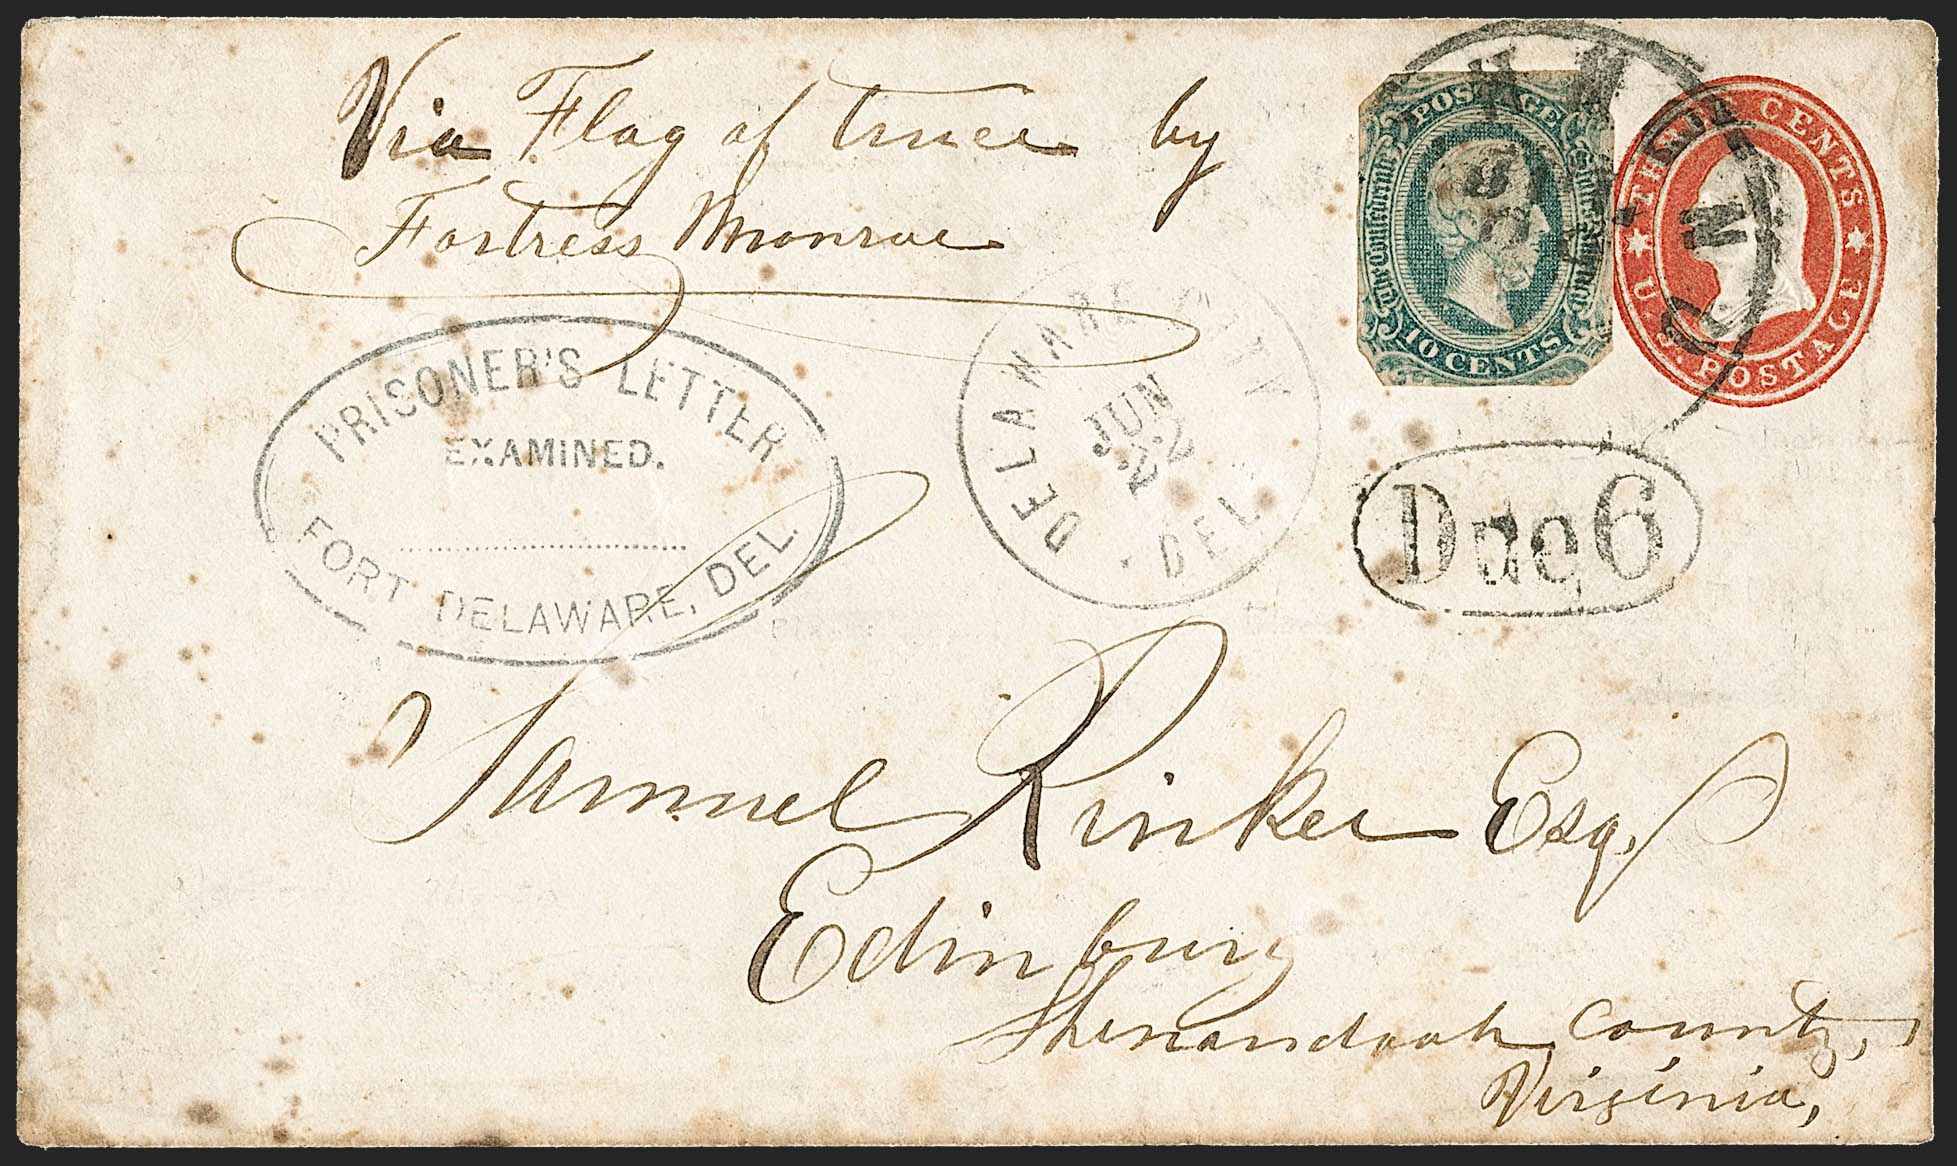 Via Flag of truce by
Fortress Monroe
POSTAGE
The Confederate States of America
10 CENTS
THREE CENTS
U.S. POSTAGE
PRISONER'S LETTER
EXAMINED.
FORT DELAWARE, DEL.
DELAWARE CITY
JUN
22
DEL
Due 6
Samuel Rinker Esq.
Edinburg
Shenandoah County,
Virginia,